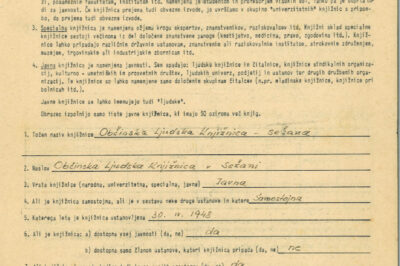 di, posameznih fakultet, institutov itd. namenjena študentom in profesorjem visokih šol, lahko pa je knjižnica tu-
di za javnost. Če pri fakultetah to spolnijo obrazce izvode, jo uvrščamo v skupino univerzitetnih knjižnic s pripo-
bo, da prejema tudi obvezne izvode.
3. Specialna knjižnica je namenjena ožjemu krogu ekspertov, znanstvenikov, raziskovalcev itd. Knjižni sklad specialne
knjižnice sestoji večinoma iz del določene znanstvene panoge (kmetijstvo, medicina, pravo, zgodovina itd.). Te
knjižnice lahko pripadajo različnim državnim ustanovam, znanstvenim ali raziskovalnim institutom, strokovnim združenjem,
muzejem, trgovinskim ali industrijskim zbornicam itd.
4. Javna knjižnica je namenjena javnosti. Sem spadajo: ljudske knjižnice in čitalnice, knjižnice sindikalnih organizacij,
kulturno - umetniških in prosvetnih društev, ljudskih univerz, podjetij in ustanov ter drugih družbenih organi-
zacij. Te knjižnice so lahko namenjene samo določenim skupinam čitalcev (n.pr. mladinske knjižnice, knjižnice pri
bolnicah itd.).
Javne knjižnice se lahko imenujejo tudi "ljudske".
Obrazec izpolnijo samo tiste javne knjižnice, ki imajo 50 oziroma več knjig.
1. Točen naziv knjižnice Občinska Ljudska Knjižnica - Sežana
2. Naslov Občinska Ljudska Knjižnica v Sežani
3. Vrsta knjižnice (narodna, univerzitetna, specialna, javna) Javna
4. Ali je knjižnica samostojna, ali je v sestavu neke druge ustanove in katere Samostojna
5. Katerega leta je knjižnica ustanovljena 30. IV. 1948
6. Ali je knjižnica: a) dostopna vsej javnosti (da, ne) da
b) dostopna samo članom ustanove, kateri knjižnica pripada (da, ne) ne
da